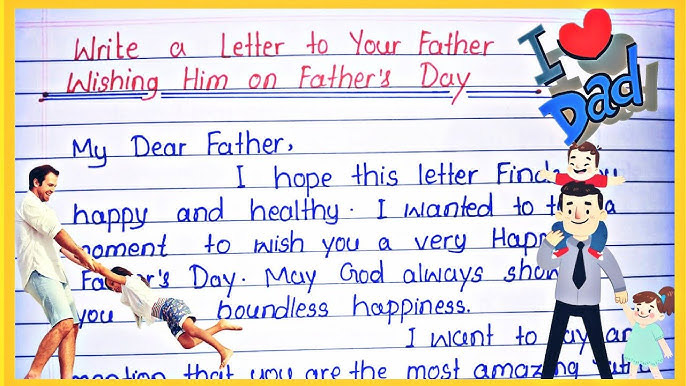 Write a Letter to Your Father
Wishing Him on Father's Day
I
Dad
My Dear Father,
I hope this letter
happy and healthy. I wanted to a
moment to wish you a very
Father's Day. May God always
you boundless happiness.
I want to
mention that you are the most amazing